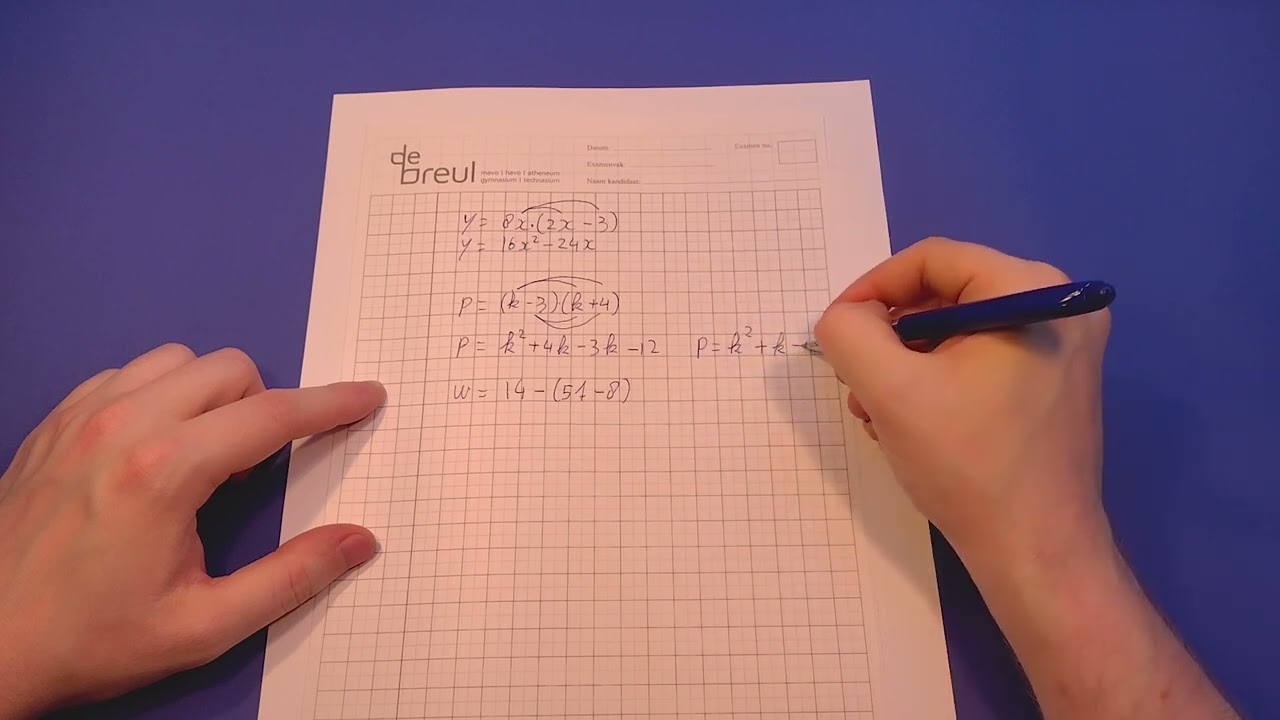 de breul
mavo | havo | atheneum
gymnasium | technasium
Datum:
Examenvak:
Naam kandidaat:
Examen nr.
y = 8x·(2x - 3)
y = 16x² - 24x
P = (k - 3)(k + 4)
P = k² + 4k - 3k - 12 P = k² + k -
W = 14 - (51 - 8)